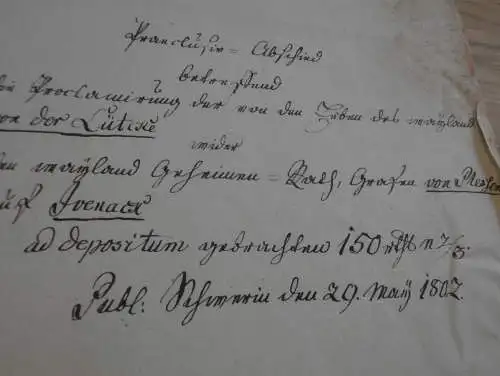 Praeclusiv = Abschied
betreffend
die Proclamirung der von den Erben des wayland
von der Lütke
wider
den wayland Geheimen = Rath, Grafen von Plessen
auf Ivenack
ad depositum gebrachten 150 rthl n 2/3.
Publ: Schwerin den 29. May 1802.